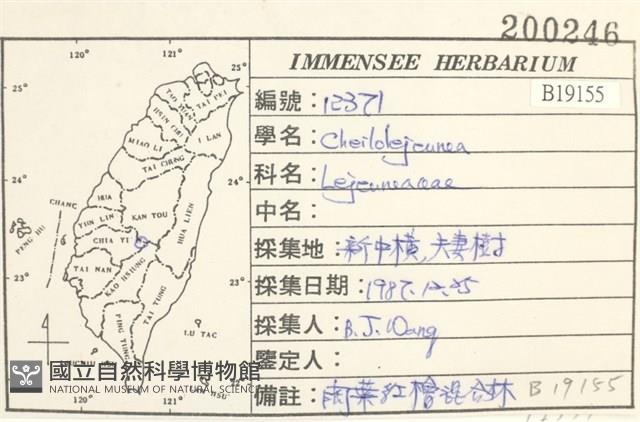 200246
IMMENSEE HERBARIUM
B19155
編號：12371
學名：Cheilolejeunea
科名：Lejeuneaceae
中名：
採集地：新中橫,夫妻樹
採集日期：1987.12.25
採集人：B.J.Wang
鑒定人：
備註：闊葉紅檜混合林 B19155
120°
121°
25°
25°
TAO YUAN
TAI PEI
HSIN CHU
I LAN
MIAO LI
TAI CHUNG
24°
24°
CHANG
HUA
NAN TOU
HUA LIEN
YUN LIN
PENG HU
CHIA YI
TAI NAN
23°
23°
KAO HSIUNG
TAI TUNG
PING TUNG
LU TAO
120°
121°
國立自然科學博物館
NATIONAL MUSEUM OF NATURAL SCIENCE